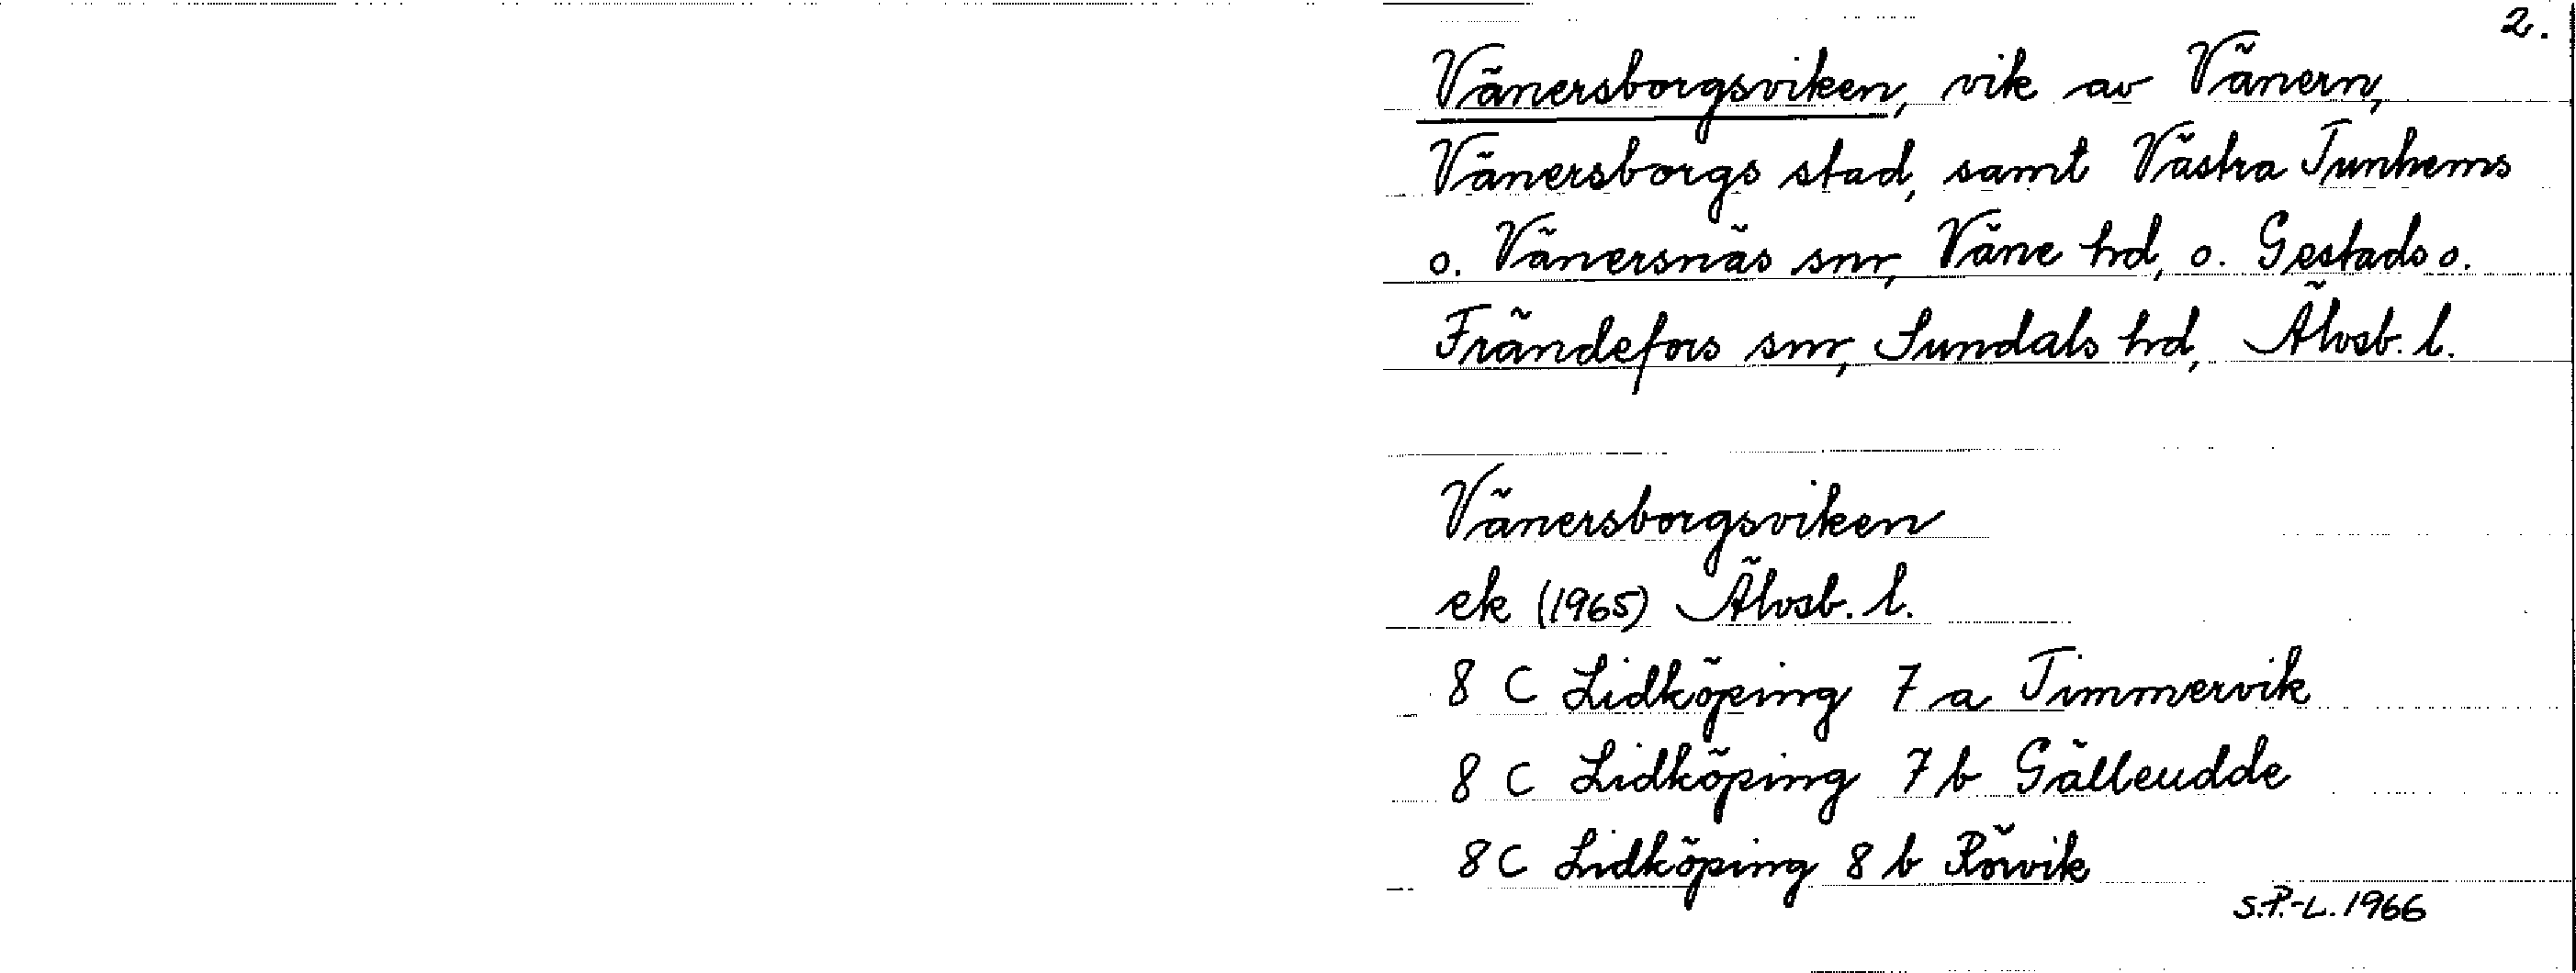 2.
Vänersborgsviken, vik av Vänern,
Vänersborgs stad, samt Västra Tunhems
o. Vänersnäs snr, Väne hd, o. Gestads o.
Frändefors snr, Sundals hd, Älvsb. l.
Vänersborgsviken
ek (1965) Älvsb. l.
8 C Lidköping 7 a Timmervik
8 C Lidköping 7 b Gälleudde
8 C Lidköping 8 b Rörvik
S.P.-L. 1966